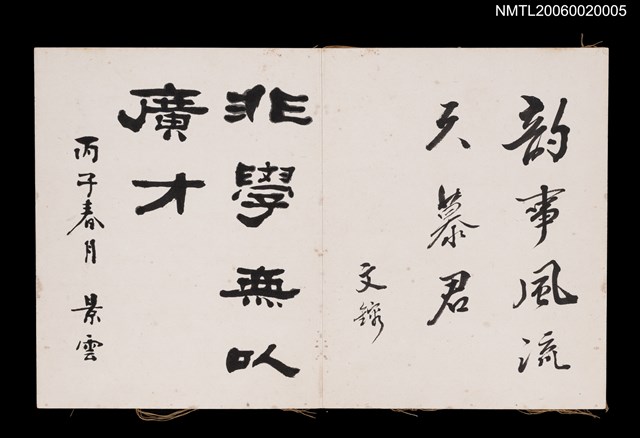 NMTL20060020005
韵事風流
天慕君
文鎊
非學無以
廣才
丙子春月 景雲